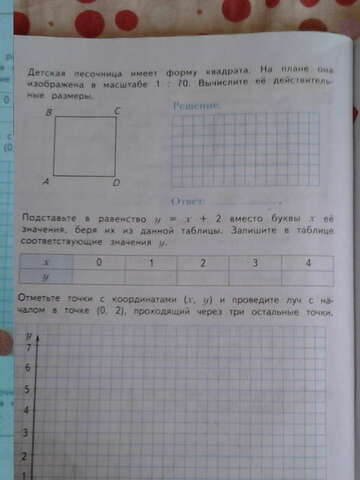 Детская песочница имеет форму квадрата. На плане она
изображена в масштабе 1 : 70. Вычислите её действитель-
ные размеры.
B C
Решение.
A D
Ответ
Подставьте в равенство y = x + 2 вместо буквы x её
значения, беря их из данной таблицы. Запишите в таблице
соответствующие значения y.
x 0 1 2 3 4
y
Отметьте точки с координатами (x, y) и проведите луч с на-
чалом в точке (0, 2), проходящий через три остальные точки.
y
7
6
5
4
3
2
1